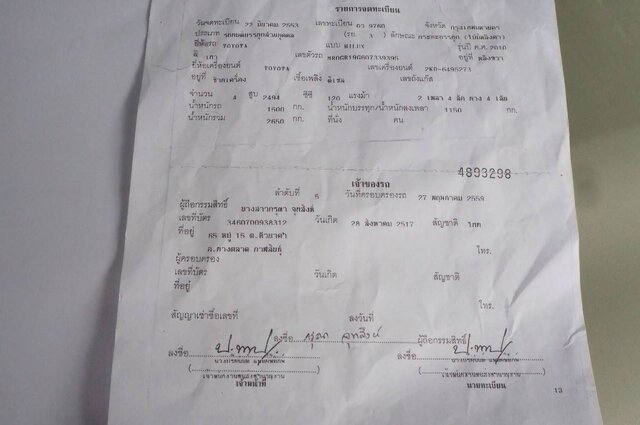 รายการจดทะเบียน
วันจดทะเบียน 22 มีนาคม 2553 เลขทะเบียน 9768 จังหวัด กรุงเทพมหานคร
ประเภท รถยนต์บรรทุกส่วนบุคคล (รย. 3 ) ลักษณะ กระบะบรรทุก (ไม่มีหลังคา)
ยี่ห้อรถ TOYOTA แบบ HILUX รุ่นปี ค.ศ. 2010
สี เทา เลขตัวรถ อยู่ที่
ยี่ห้อเครื่องยนต์ TOYOTA เลขเครื่องยนต์ 2KD-6495273
อยู่ที่ เชื้อเพลิง ดีเซล เลขถังแก๊ส
จำนวน 4 สูบ 2494 ซีซี 120 แรงม้า 2 เพลา 4 ล้อ ยาง 4 เส้น
น้ำหนักรถ 1500 กก. น้ำหนักบรรทุก/น้ำหนักลงเพลา 1150 กก.
น้ำหนักรวม 2650 กก. ที่นั่ง คน
4893298
เจ้าของรถ
ลำดับที่ 5 วันที่ครอบครองรถ 27 พฤษภาคม 2559
ผู้ถือกรรมสิทธิ์ นางสาวกรุณา
เลขที่บัตร 3460700938312 วันเกิด 28 สิงหาคม 2517 สัญชาติ ไทย
ที่อยู่ 65 หมู่ 15
อ.ยางตลาด กาฬสินธุ์ โทร.
ผู้ครอบครอง
เลขที่บัตร วันเกิด สัญชาติ
ที่อยู่
โทร.
สัญญาเช่าซื้อเลขที่ ลงวันที่
ลงชื่อ กรุณา ผู้ถือกรรมสิทธิ์
ลงชื่อ ลงชื่อ
เจ้าหน้าที่ นายทะเบียน
13